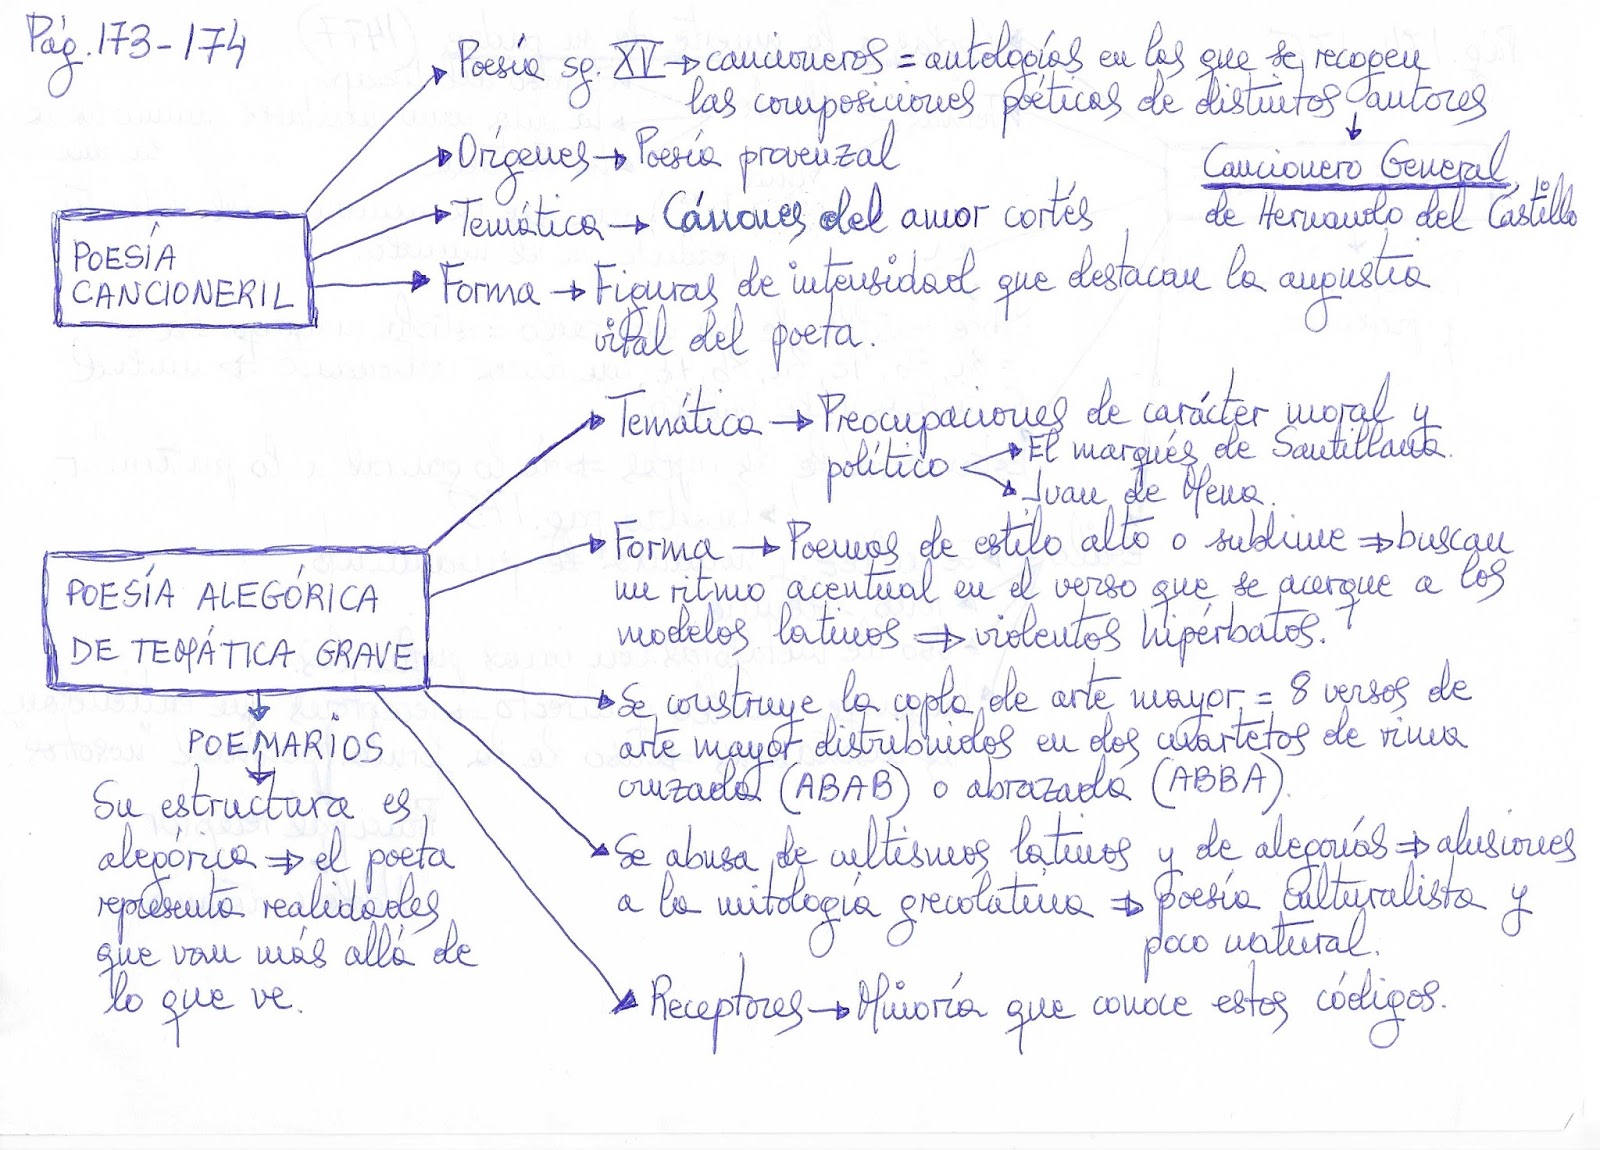 Pág. 173-174
Poesía sg. XV → cancioneros = antologías en las que se recogen
las composiciones poéticas de distintos autores
↓
Cancionero General
de Hernando del Castillo
Orígenes → Poesía provenzal
Temática → Cánones del amor cortés
POESÍA
CANCIONERIL
Forma → Figuras de intensidad que destacan la angustia
vital del poeta.
Temática → Preocupaciones de carácter moral y
político
El marqués de Santillana.
Juan de Mena.
Forma → Poemas de estilo alto o sublime ⇒ buscan
un ritmo acentual en el verso que se acerque a los
modelos latinos ⇒ violentos hipérbatos.
POESÍA ALEGÓRICA
DE TEMÁTICA GRAVE
↓
POEMARIOS
↓
Su estructura es
alegórica ⇒ el poeta
representa realidades
que van más allá de
lo que ve.
Se construye la copla de arte mayor = 8 versos de
arte mayor distribuidos en dos cuartetos de rima
cruzada (ABAB) o abrazada (ABBA).
Se abusa de cultismos latinos y de alegorías ⇒ alusiones
a la mitología grecolatina ⇒ poesía culturalista y
poco natural.
Receptores → Minoría que conoce estos códigos.